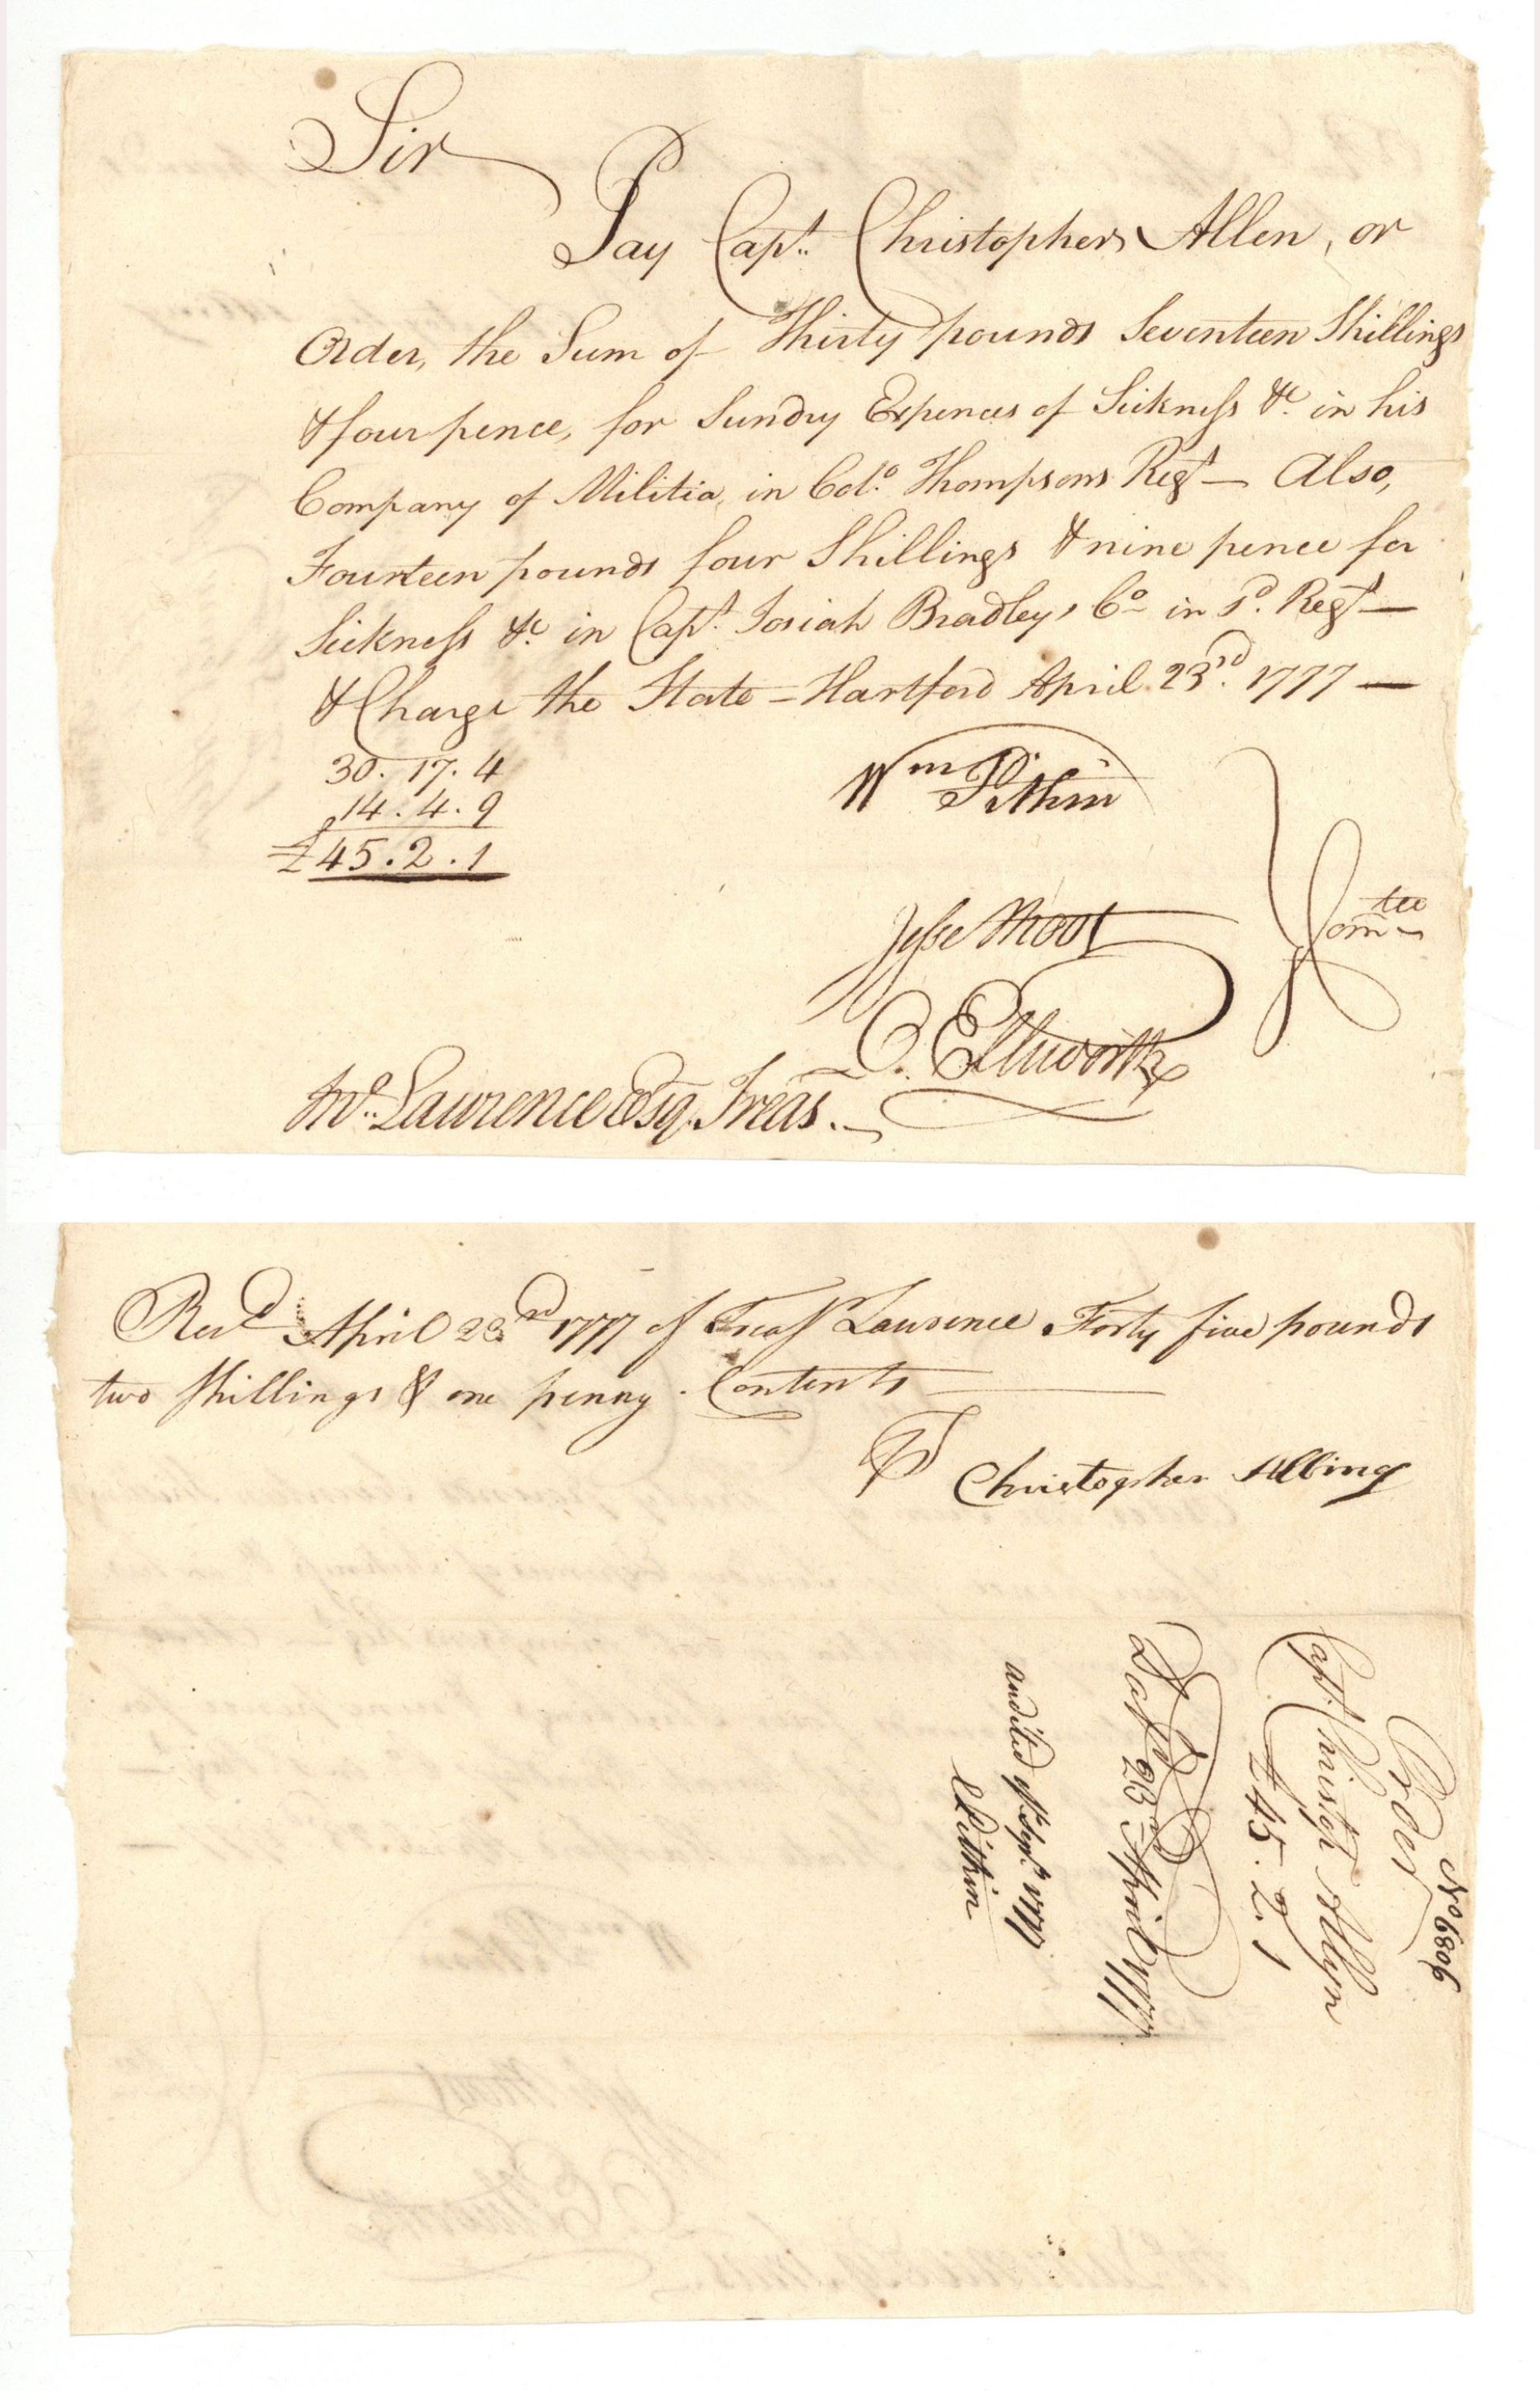 Sir
Pay Capt. Christopher Allen, or
Order, the Sum of Thirty pounds Seventeen Shillings
& four pence, for Sundry Expences of Sickness &c. in his
Company of Militia, in Colo. Thompsons Regt — Also,
Fourteen pounds four Shillings & nine pence for
Sickness &c in Capt. Josiah Bradleys Co in sd. Regt —
& Charge the State — Hartford April 23rd. 1777 —
30. 17. 4
14. 4. 9
£45. 2. 1
Wm Pitkin
Jesse Root
Comtee
O. Ellsworth
Jno. Lawrence Esq. Treas. —
Recd April 23rd 1777 of Treasr Lawrence Forty five pounds
two shillings & one penny. Contents
Christopher Alling
No 6806
Order
Capt. Christopr Allyn
£45. 2. 1
Dat. 23rd April 1777
audited Sept. 1777
Pitkin